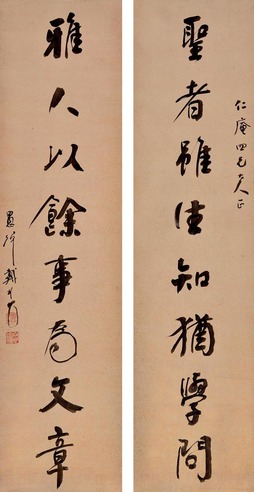 仁庵四兄大人正
聖者雖知猶學問
雅人以餘事為文章